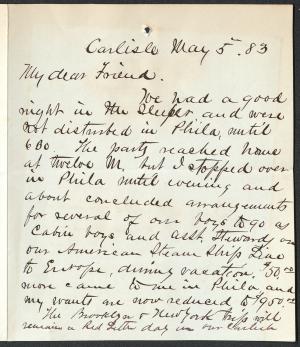 Carlisle May 5th. 83
My dear Friend.
We had a good
night in the Sleeper, and were
not disturbed in Phila, until
6 30. The party reached home
at twelve M. but I stopped over
in Phila until evening and
about concluded arrangements
for several of our boys to go as
Cabin boys and asst. Stewards on
our American Steam Ship Line
to Europe, during vacation. $50.00
more came to me in Phila, and
my wants are now reduced to $950.00
The Brooklyn & New York trips will
remain a Red Letter day in our Carlisle